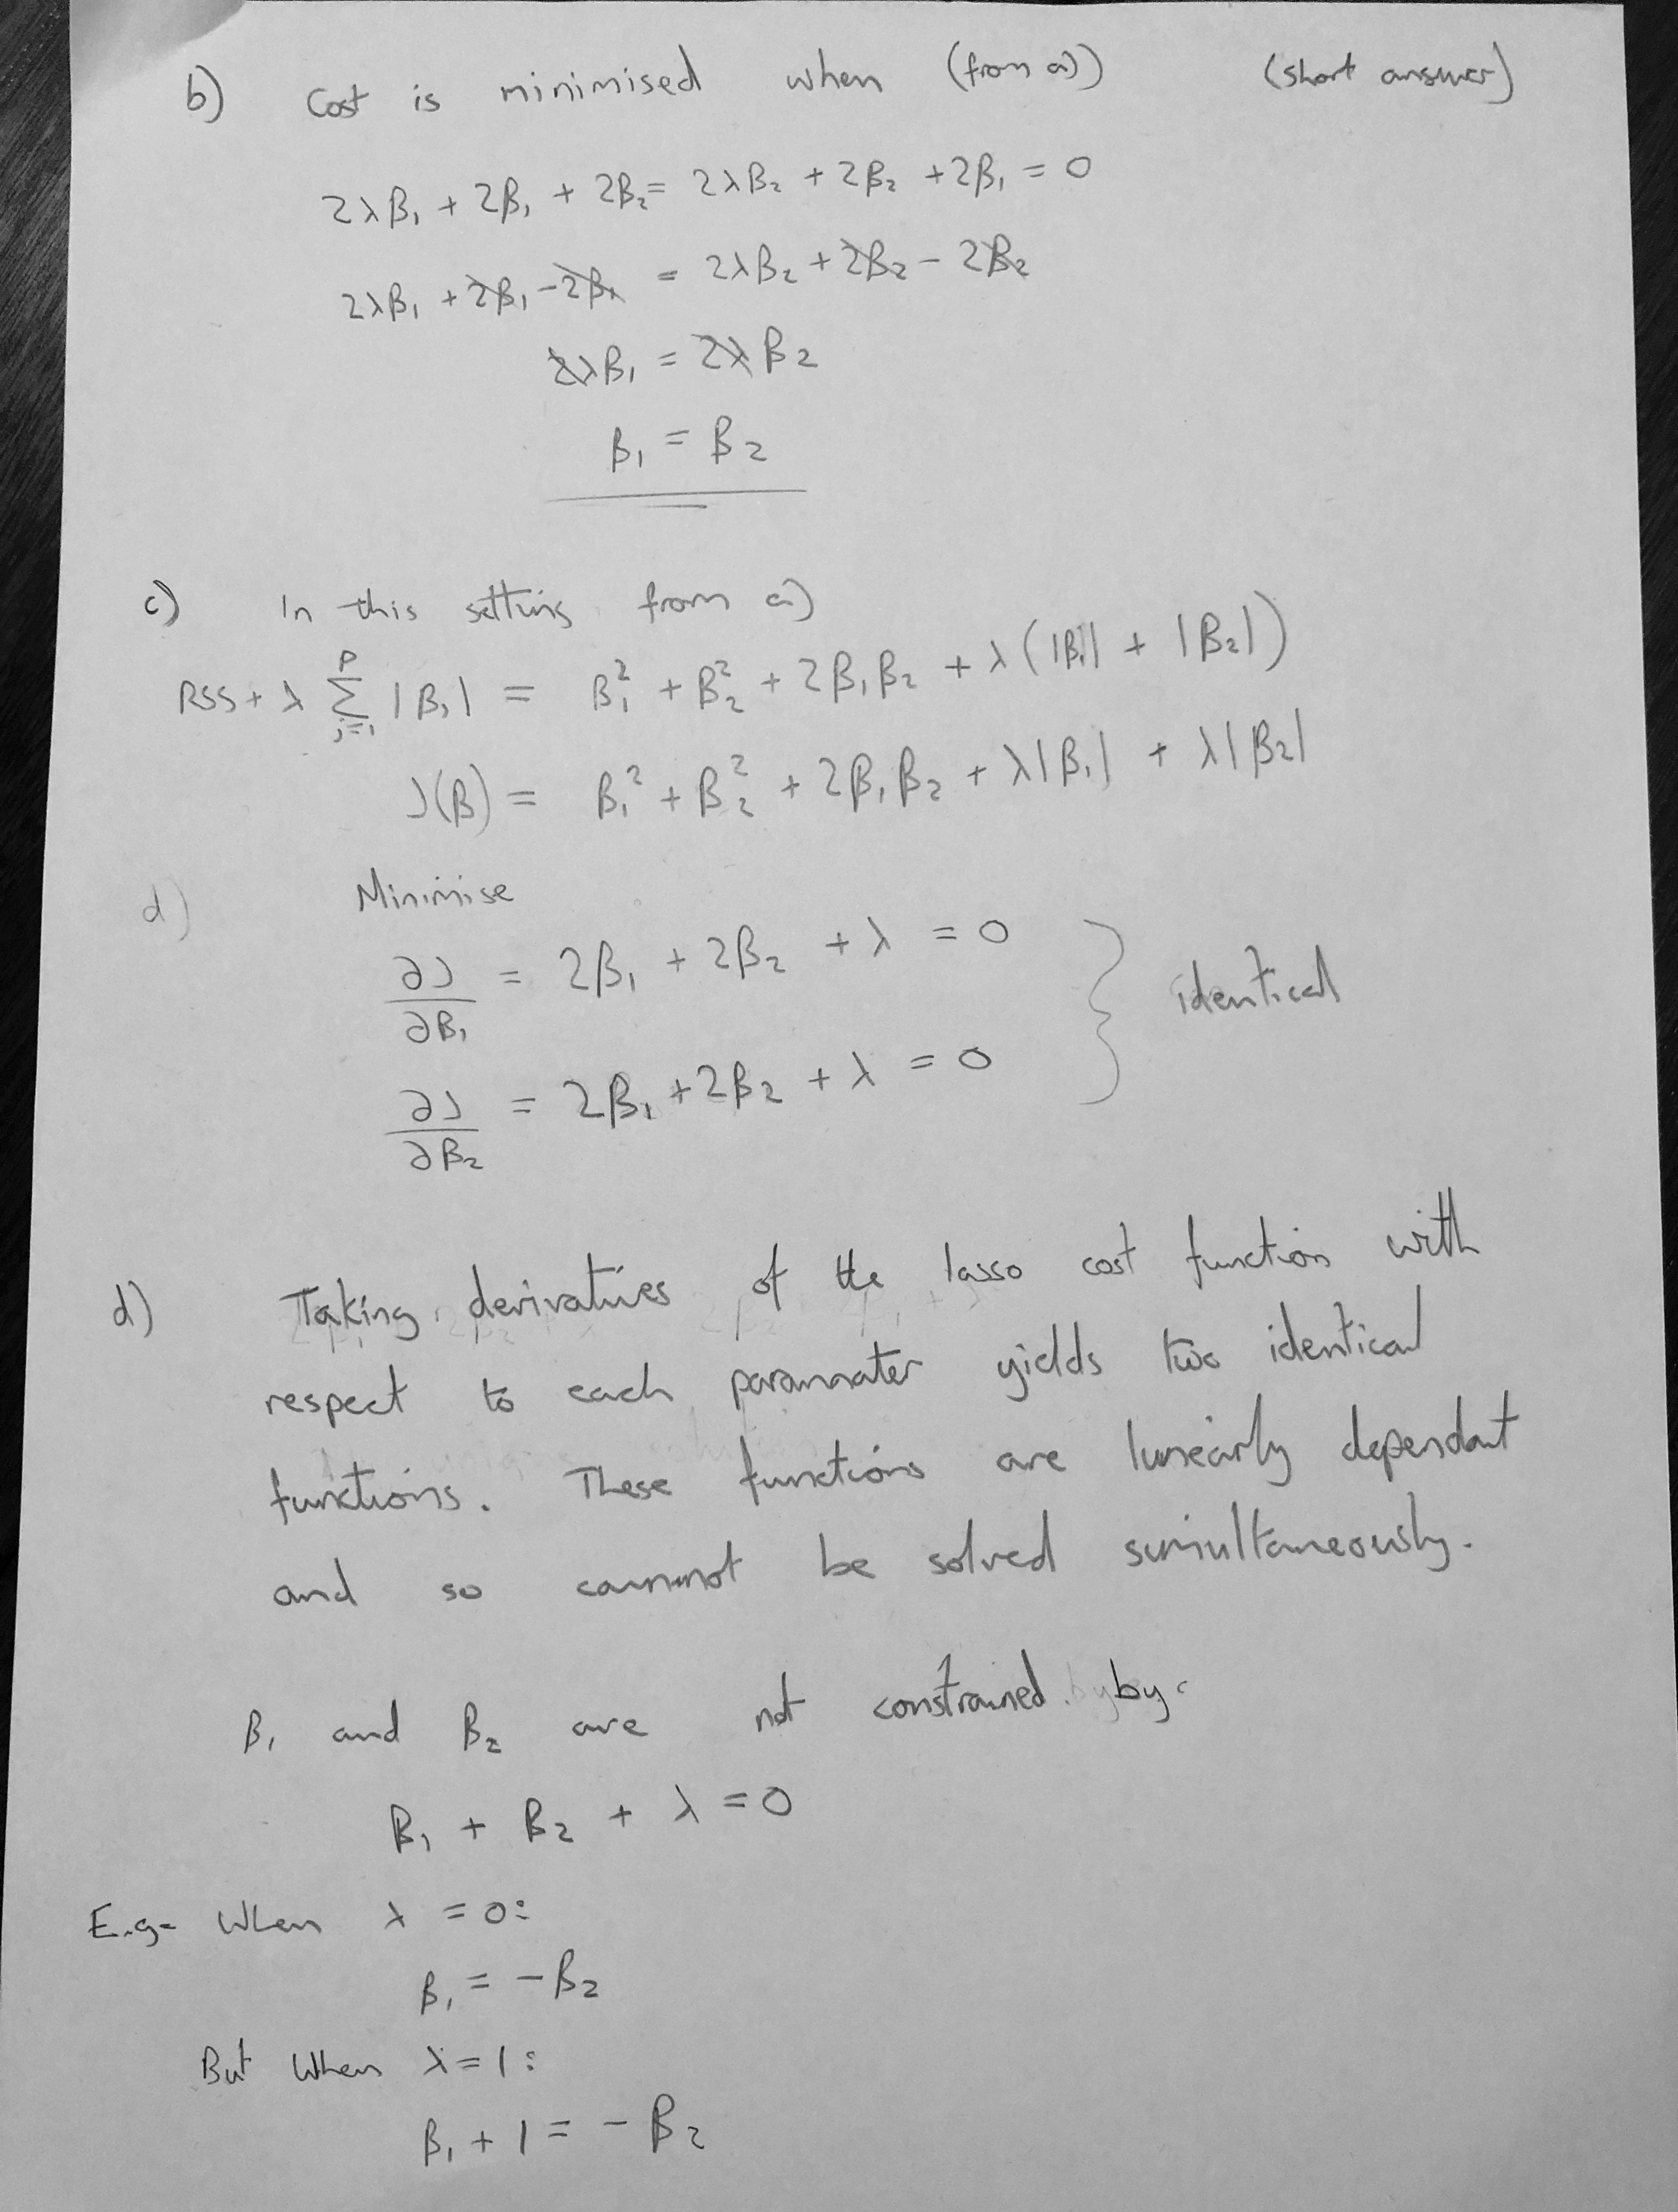 b) Cost is minimised when (from a)) (short answer)
2λβ₁ + 2β₁ + 2β₂ = 2λβ₂ + 2β₂ + 2β₁ = 0
2λβ₁ + 2β₁ - 2β₁ = 2λβ₂ + 2β₂ - 2β₂
2λβ₁ = 2λβ₂
β₁ = β₂
c) In this setting from a)
RSS + λ Σ_{j=1}^{p} |βⱼ| = β₁² + β₂² + 2β₁β₂ + λ(|β₁| + |β₂|)
J(β) = β₁² + β₂² + 2β₁β₂ + λ|β₁| + λ|β₂|
d) Minimise
∂J/∂β₁ = 2β₁ + 2β₂ + λ = 0
} identical
∂J/∂β₂ = 2β₁ + 2β₂ + λ = 0
d) Taking derivatives of the lasso cost function with
respect to each paramater yields two identical
functions. These functions are linearly dependant
and so cannot be solved simultaneously.
β₁ and β₂ are not constrained by
β₁ + β₂ + λ = 0
E.g. When λ = 0:
β₁ = -β₂
But When λ = 1:
β₁ + 1 = -β₂